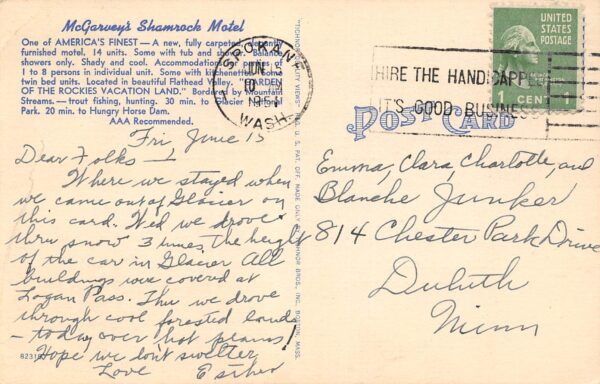 McGarvey's Shamrock Motel
One of AMERICA'S FINEST — A new, fully carpeted, elegantly
furnished motel. 14 units. Some with tub and shower. Balance
showers only. Shady and cool. Accommodations for parties of
1 to 8 persons in individual unit. Some with kitchenettes, some
twin bed units. Located in beautiful Flathead Valley, "GARDEN
OF THE ROCKIES VACATION LAND." Bordered by Mountain
Streams.— trout fishing, hunting. 30 min. to Glacier National
Park. 20 min. to Hungry Horse Dam.
AAA Recommended.
Fri June 15
Dear Folks —
Where we stayed when
we came out of Glacier on
this card. Wed we drove
thru snow 3 times the height
of the car in Glacier All
buildings were covered at
Logan Pass. Thu we drove
through cool forested lands
— today over hot plains!
Hope we don't swelter
Love Esther
SPOKANE
JUN
1951
WASH.
HIRE THE HANDICAPPED
IT'S GOOD BUSINESS
UNITED
STATES
POSTAGE
1 CENT
POST CARD
Emma, Clara, Charlotte, and
Blanche Junker
814 Chester Park Drive
Duluth
Minn